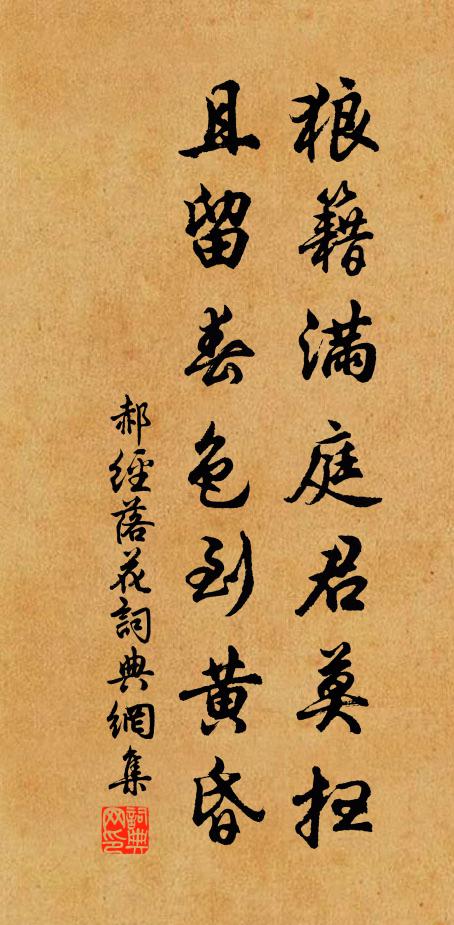 狼籍满庭君莫扫
且留春色到黄昏
郝經落花詞典網集
詞典网印